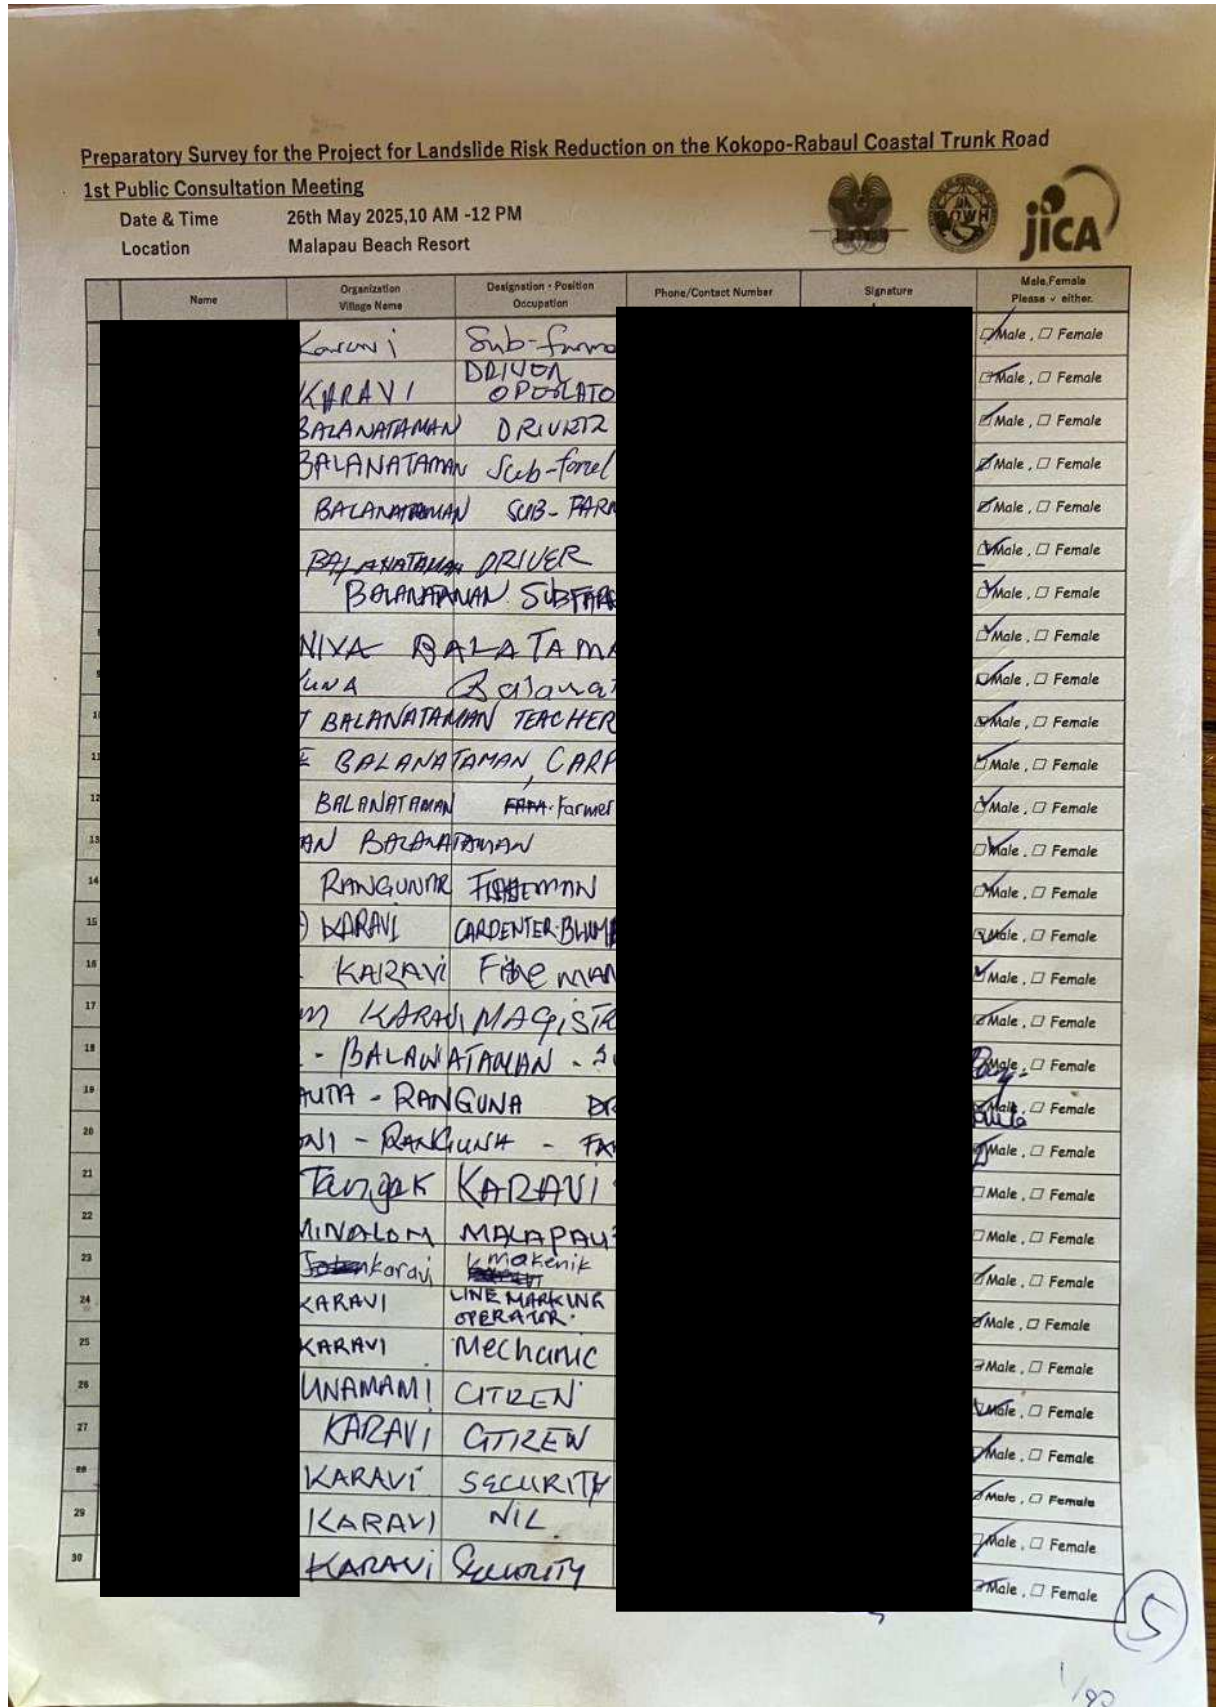 Preparatory Survey for the Project for Landslide Risk Reduction on the Kokopo-Rabaul Coastal Trunk Road
1st Public Consultation Meeting
Date & Time 26th May 2025,10 AM -12 PM
Location Malapau Beach Resort
JICA
Name Organization Village Name Designation・Position Occupation Phone/Contact Number Signature Male,Female Please ✓ either.
Karavi Sub-farme Male , Female
KARAVI DRIVER OPERATO Male , Female
BALANATAMAN DRIVER Male , Female
BALANATAMAN Sub- Male , Female
BALANATAMAN SUB-FARM Male , Female
BALANATAMAN DRIVER Male , Female
BALANATAMAN SUBFAR Male , Female
NIVA BALATAMA Male , Female
UNA Balana Male , Female
10 BALANATAMAN TEACHER Male , Female
11 BALANATAMAN, CARP Male , Female
12 BALANATAMAN Farmer Male , Female
13 AN BALANATAMAN Male , Female
14 RANGUNAR Male , Female
15 KARAVI CARDENTER-BLUM Male , Female
16 KARAVI MAN Male , Female
17 KARAVI MAGISTR Male , Female
18 - BALANATAMAN - Male , Female
19 AUTA - RANGUNA DR Male , Female
20 ONI - RANGUNA - FA Male , Female
21 Tangak KARAVI Male , Female
22 MINALOM MALAPAU Male , Female
23 karavi makenik Male , Female
24 KARAVI LINE MARKING OPERATOR. Male , Female
25 KARAVI Mechanic Male , Female
26 UNAMAMI CITIZEN Male , Female
27 KARAVI CITIZEN Male , Female
28 KARAVI SECURITY Male , Female
29 KARAVI NIL Male , Female
30 KARAVI Security Male , Female
5